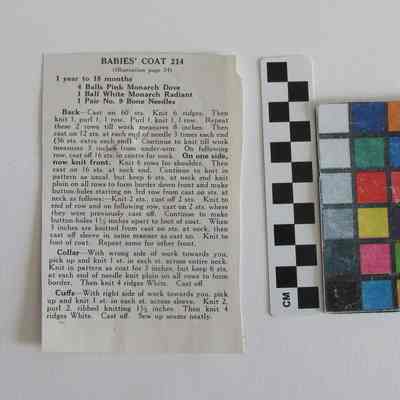 BABIES' COAT 214
(Illustration page 24)
1 year to 18 months
4 Balls Pink Monarch Dove
1 Ball White Monarch Radiant
1 Pair No. 9 Bone Needles
Back—Cast on 60 sts. Knit 6 ridges. Then
knit 1, purl 1, 1 row. Purl 1, knit 1, 1 row. Repeat
these 2 rows till work measures 8 inches. Then
cast on 12 sts. at each end of needle 3 times each end
(36 sts. extra each end). Continue to knit till work
measures 3 inches from under-arm. On following
row, cast off 16 sts. in centre for neck. On one side,
now knit front: Knit 6 rows for shoulder. Then
cast on 16 sts. at neck end. Continue to knit in
pattern as usual, but keep 6 sts. at neck end knit
plain on all rows to form border down front and make
button-holes starting on 3rd row from cast on sts. at
neck as follows:—Knit 2 sts. cast off 2 sts. Knit to
end of row and on following row, cast on 2 sts. where
they were previously cast off. Continue to make
button-holes 1½ inches apart to foot of coat. When
3 inches are knitted from cast on sts. at neck, then
cast off sleeve in same manner as cast on. Knit to
foot of coat. Repeat same for other front.
Collar—With wrong side of work towards you,
pick up and knit 1 st. in each st. across entire neck.
Knit in pattern as coat for 3 inches, but keep 6 sts.
at each end of needle knit plain on all rows to form
border. Then knit 4 ridges White. Cast off.
Cuffs—With right side of work towards you, pick
up and knit 1 st. in each st. across sleeve. Knit 2,
purl 2, ribbed knitting 1½ inches. Then knit 4
ridges White. Cast off. Sew up seams neatly.
CM